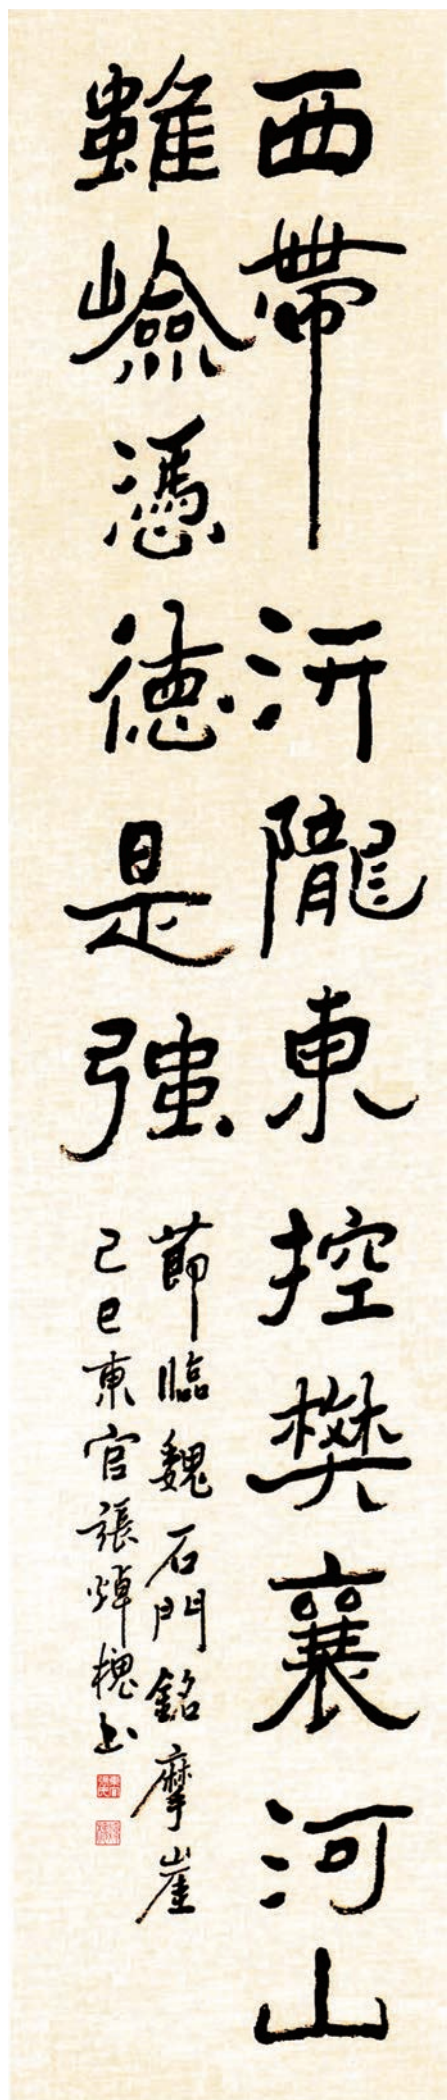 西帶汧隴東控樊襄河山
雖嶮憑德是強
節臨魏石門銘摩崖
己巳東官張焯槐書